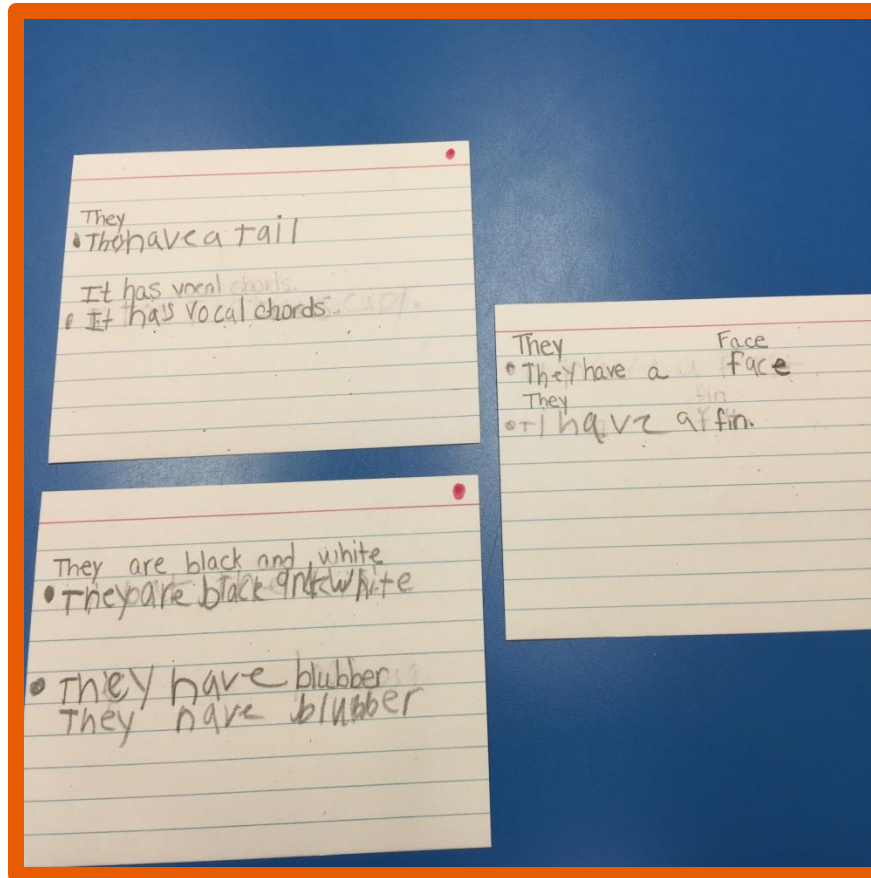 They
Thehave a tail
It has vocal chords.
It has vocal chords.
They are black and white
They are black and white
They have blubber
They have blubber
They Face
They have a face
They fin
have a fin.